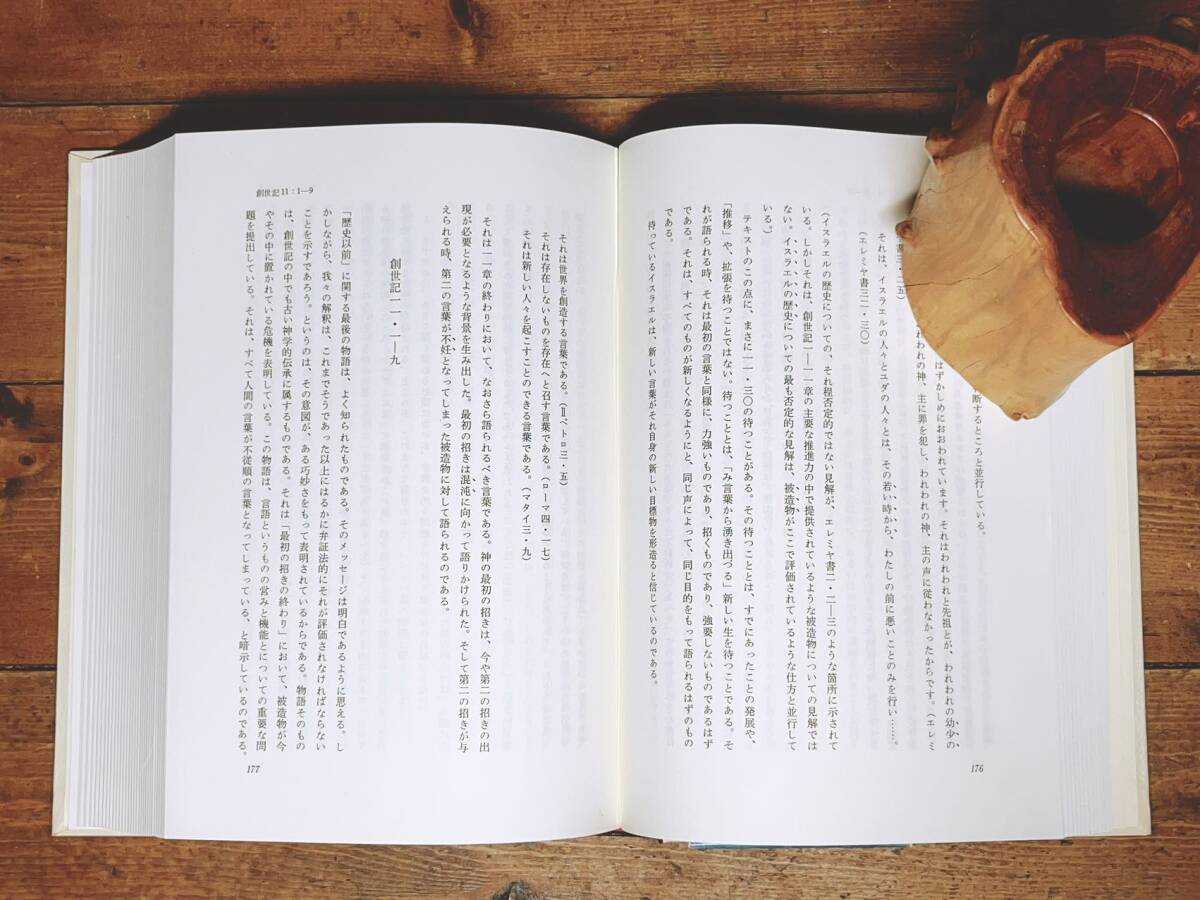 断するところと並行している。
はずかしめにおおわれています。それはわれわれと先祖とが、われわれの幼少の
われわれの神、主に罪を犯し、われわれの神、主の声に従わなかったからです。（エレミ
書三・二五）
それは、イスラエルの人々とユダの人々とは、その若い時から、わたしの前に悪いことのみを行い……。
（エレミヤ書三二・三〇）
（イスラエルの歴史についての、それ程否定的ではない見解が、エレミヤ書二・二―三のような箇所に示されて
いる。しかしそれは、創世記一―一一章の主要な推進力の中で提供されているような被造物についての見解では
ない。イスラエルの歴史についての最も否定的な見解は、被造物がここで評価されているような仕方と並行して
いる。）
テキストのこの点に、まさに一一・三〇の待つことがある。その待つこととは、すでにあったことの発展や、
「推移」や、拡張を待つことではない。待つこととは、「み言葉から湧き出づる」新しい生を待つことである。そ
れが語られる時、それは最初の言葉と同様に、力強いものであり、招くものであり、強要しないものであるはず
である。それは、すべてのものが新しくなるようにと、同じ声によって、同じ目的をもって語られるはずのもの
である。
待っているイスラエルは、新しい言葉がそれ自身の新しい目標物を形造ると信じているのである。
176
創世記11：1―9
それは世界を創造する言葉である。（Ⅱペトロ三・五）
それは存在しないものを存在へと召す言葉である。（ローマ四・一七）
それは新しい人々を起こすことのできる言葉である。（マタイ三・九）
それは一一章の終わりにおいて、なおさら語られるべき言葉である。神の最初の招きは、今や第二の招きの出
現が必要となるような背景を生み出した。最初の招きは混沌に向かって語りかけられた。そして第二の招きが与
えられる時、第二の言葉が不妊となってしまった被造物に対して語られるのである。
創世記一一・一―九
「歴史以前」に関する最後の物語は、よく知られたものである。そのメッセージは明白であるように思える。し
かしながら、我々の解釈は、これまでそうであった以上にはるかに弁証法的にそれが評価されなければならない
ことを示すであろう。というのは、その意図が、ある巧妙さをもって表明されているからである。物語そのもの
は、創世記の中でも古い神学的伝承に属するものである。それは「最初の招きの終わり」において、被造物が今
やその中に置かれている危機を表明している。この物語は、言語というものの営みと機能とについての重要な問
題を提出している。それは、すべて人間の言葉が不従順の言葉となってしまっている、と暗示しているのである。
177